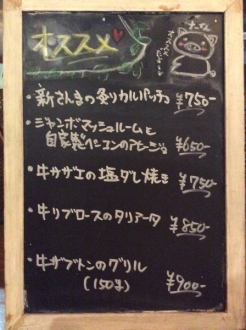 オススメ
・新さんまの炙りカルパッチョ ¥750-
・ジャンボマッシュルームと
自家製ベーコンのアヒージョ ¥650-
・牛サザエの塩ダレ焼き ¥750-
・牛リブロースのタリアータ ¥850-
・牛ザブトンのグリル
(150g) ¥900-